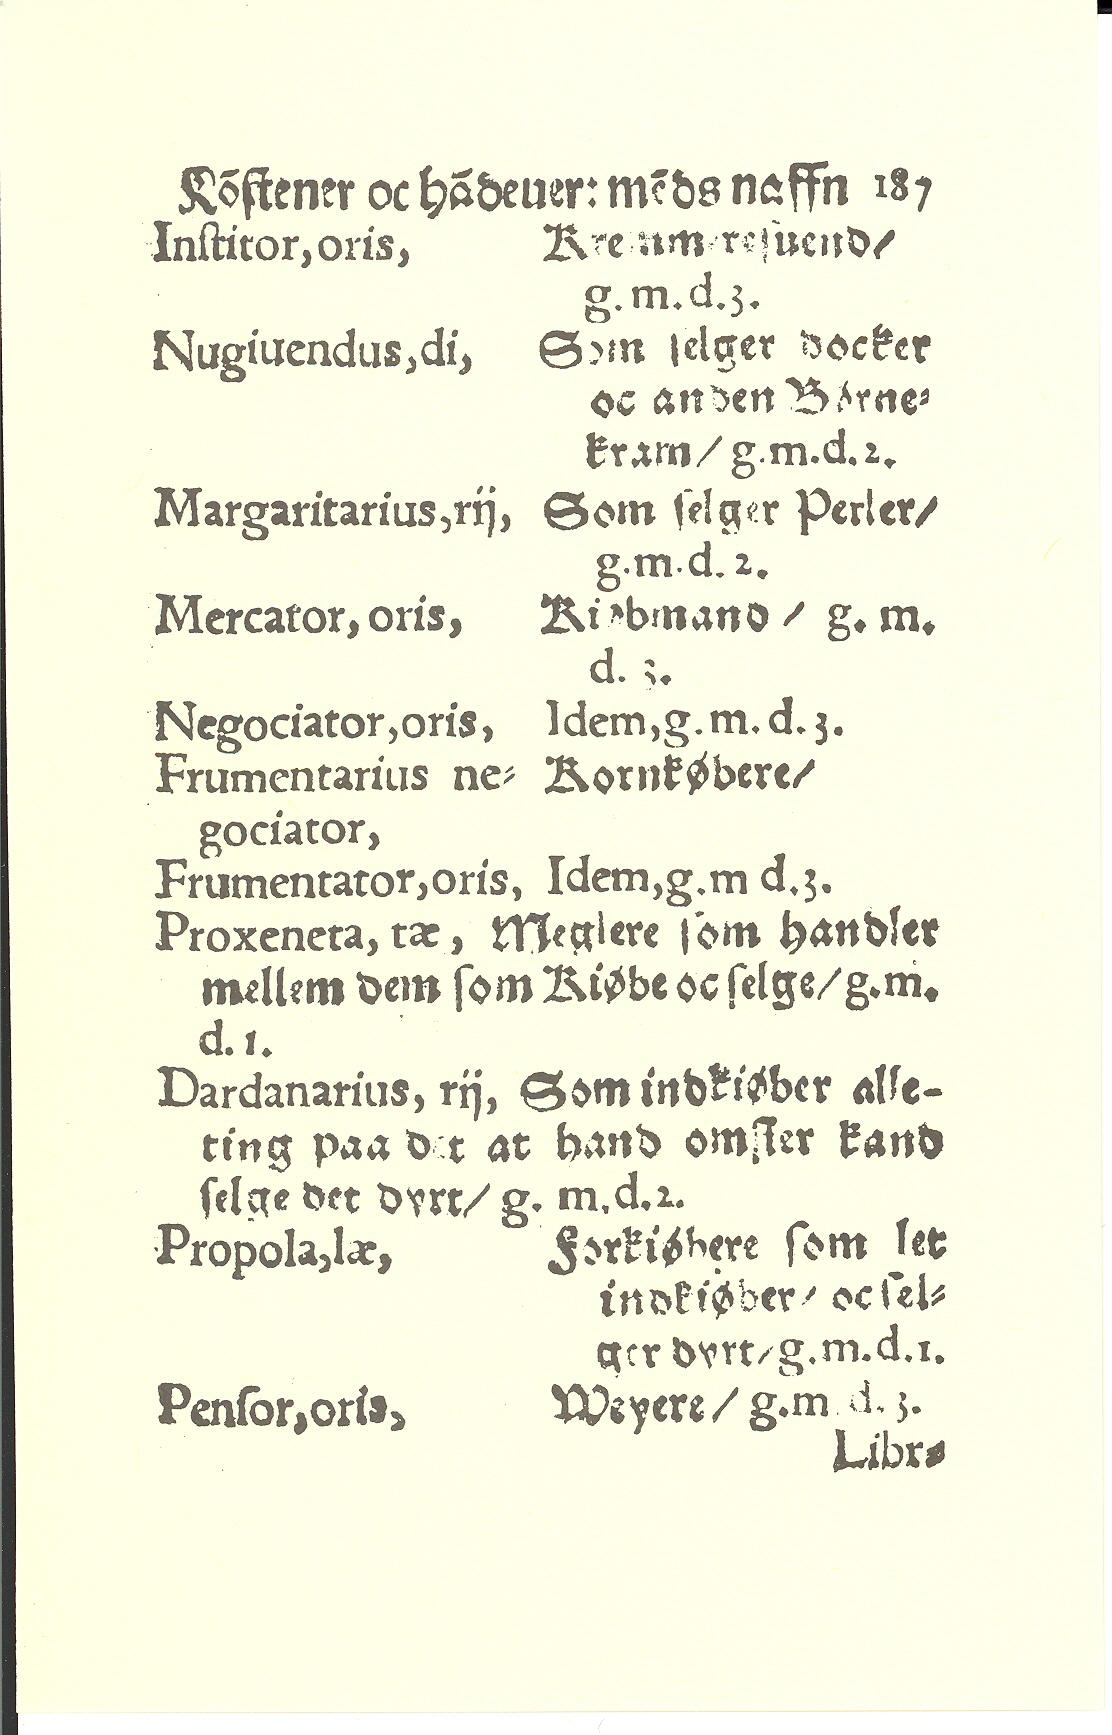 Kõstener oc hãdeuer: mẽds naffn 187
Institor, oris,
g. m. d. 3.
Nugiuendus, di, Som selger docker
oc anden Børne⸗
kram / g. m. d. 2.
Margaritarius, rij, Som selger Perler /
g. m. d. 2.
Mercator, oris, Kiøbmand / g. m.
d. 3.
Negociator, oris, Idem, g. m. d. 3.
Frumentarius ne⸗ Kornkøbere /
gociator,
Frumentator, oris, Idem, g. m d. 3.
Proxeneta, tæ, Meglere som handler
mellem dem som Kiøbe oc selge / g. m.
d. 1.
Dardanarius, rij, Som indkiøber alle-
ting paa det at hand omster kand
selge det dyrt / g. m. d. 2.
Propola, læ, Forkiøbere som let
indkiøber / oc sel⸗
ger dyrt / g. m. d. 1.
Pensor, oris, Weyere / g. m d. 3.
Libr⸗